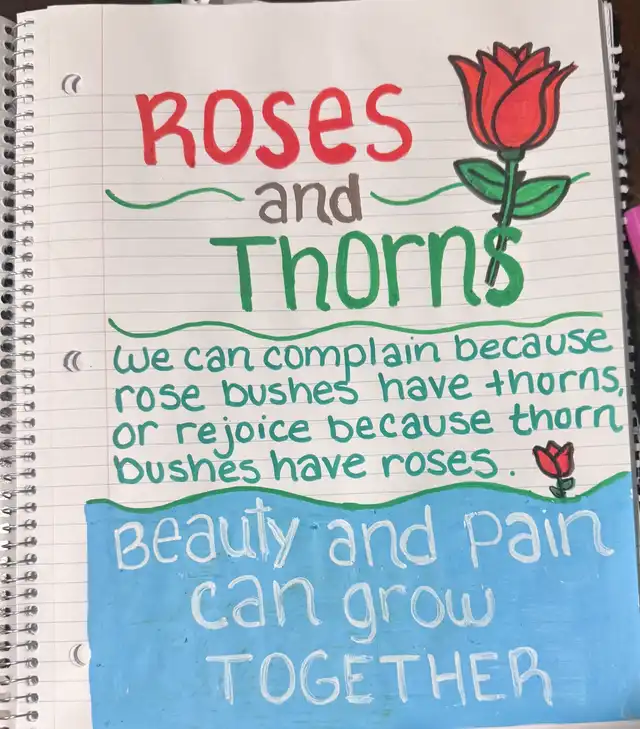 Roses
and
Thorns
We can complain because
rose bushes have thorns,
or rejoice because thorn
bushes have roses.
Beauty and pain
can grow
TOGETHER